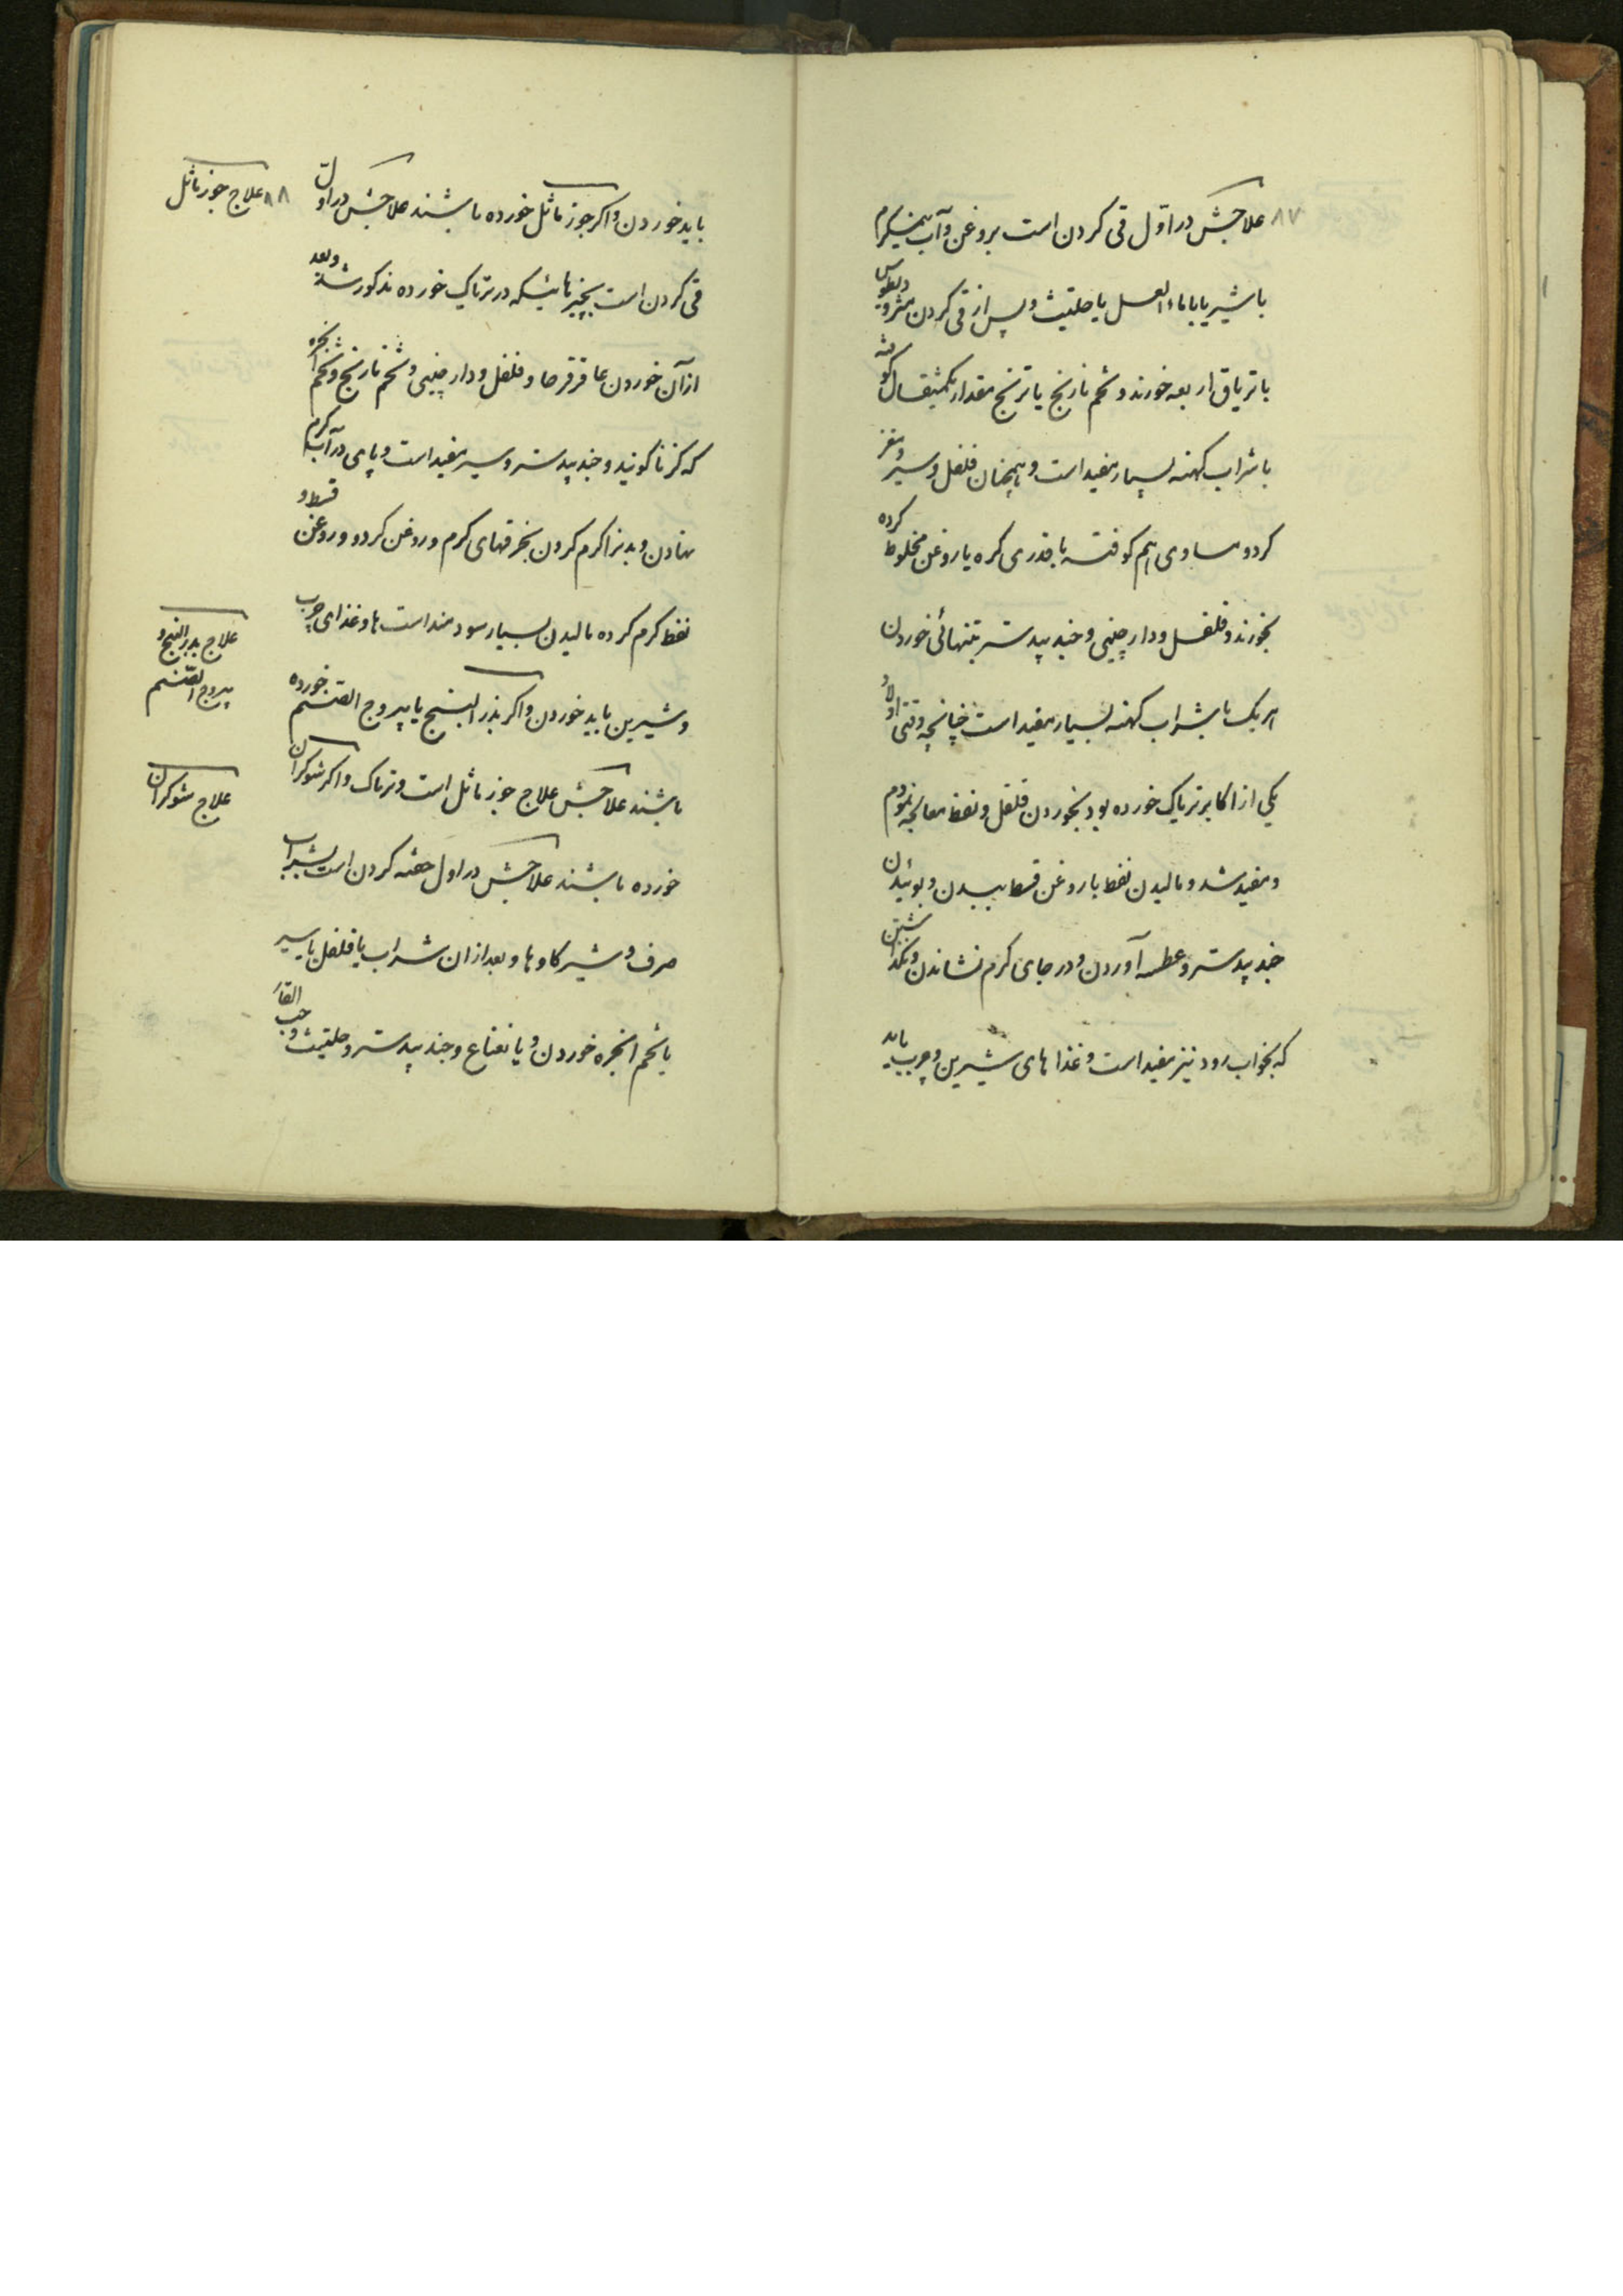 ۸۷ علاجش در اول قی کردن است بروغن و آب نیمگرم
یا شیر یا با ماء العسل یا حلتیث و پس از قی کردن مثرودیطوس
یا تریاق اربعه خورند و تخم نارنج یا ترنج مقدار یکمثقال کوفته
با شراب کهنه بسیار مفید است و همچنان فلفل و سیر و مغز
کردو مساوی هم کوفته با قدری کره یا روغن مخلوط کرده
بخورند و فلفل و دارچینی و جند بیدستر بتنهائی خوردن
هریک با شراب کهنه بسیار مفید است چنانچه وقتی اولاد
یکی از اکابر تریاک خورده بود بخوردن فلفل و نفط معالجه نمودم
و مفید شد و مالیدن نفط یا روغن قسط ببدن و بوئیدن
جند بیدستر و عطسه آوردن و در جای کرم نشاندن و نکذاشتن
که بخواب رود نیز مفید است و غذاهای شیرین و چرب باید
۸۸
علاج جوز ماثل
باید خوردن و اکر جوز ماثل خورده باشند علاجش در اول
قی کردن است بچیزهائیکه در تریاک خورده مذکور شد و بعد
از آن خوردن عاقرقرحا و فلفل و دارچینی و تخم نارنج و تخم انجره
که کزنا کویند و جند بیدستر و سیر مفید است و پای در آب کرم
نهادن و بدنرا کرم کردن بخرقهای کرم و روغن کردو و روغن قسط و
نفط کرم کرده مالیدن بسیار سودمند است ها و غذای چرب
و شیرین باید خوردن و اکر بذر البنج یا یبروج الصنم خورده
علاج بذر البنج و
یبروج الصنم
باشند علاجش علاج جوز ماثل است و تریاک و اکر شوکران
علاج شوکران
خورده باشند علاجش در اول حقنه کردن است بشراب
صرف و شیر کاو ها و بعد از ان شراب یا فلفل یا سیر
یا تخم انجره خوردن و یا نعناع و جند بیدستر و حلتیث و حب القار